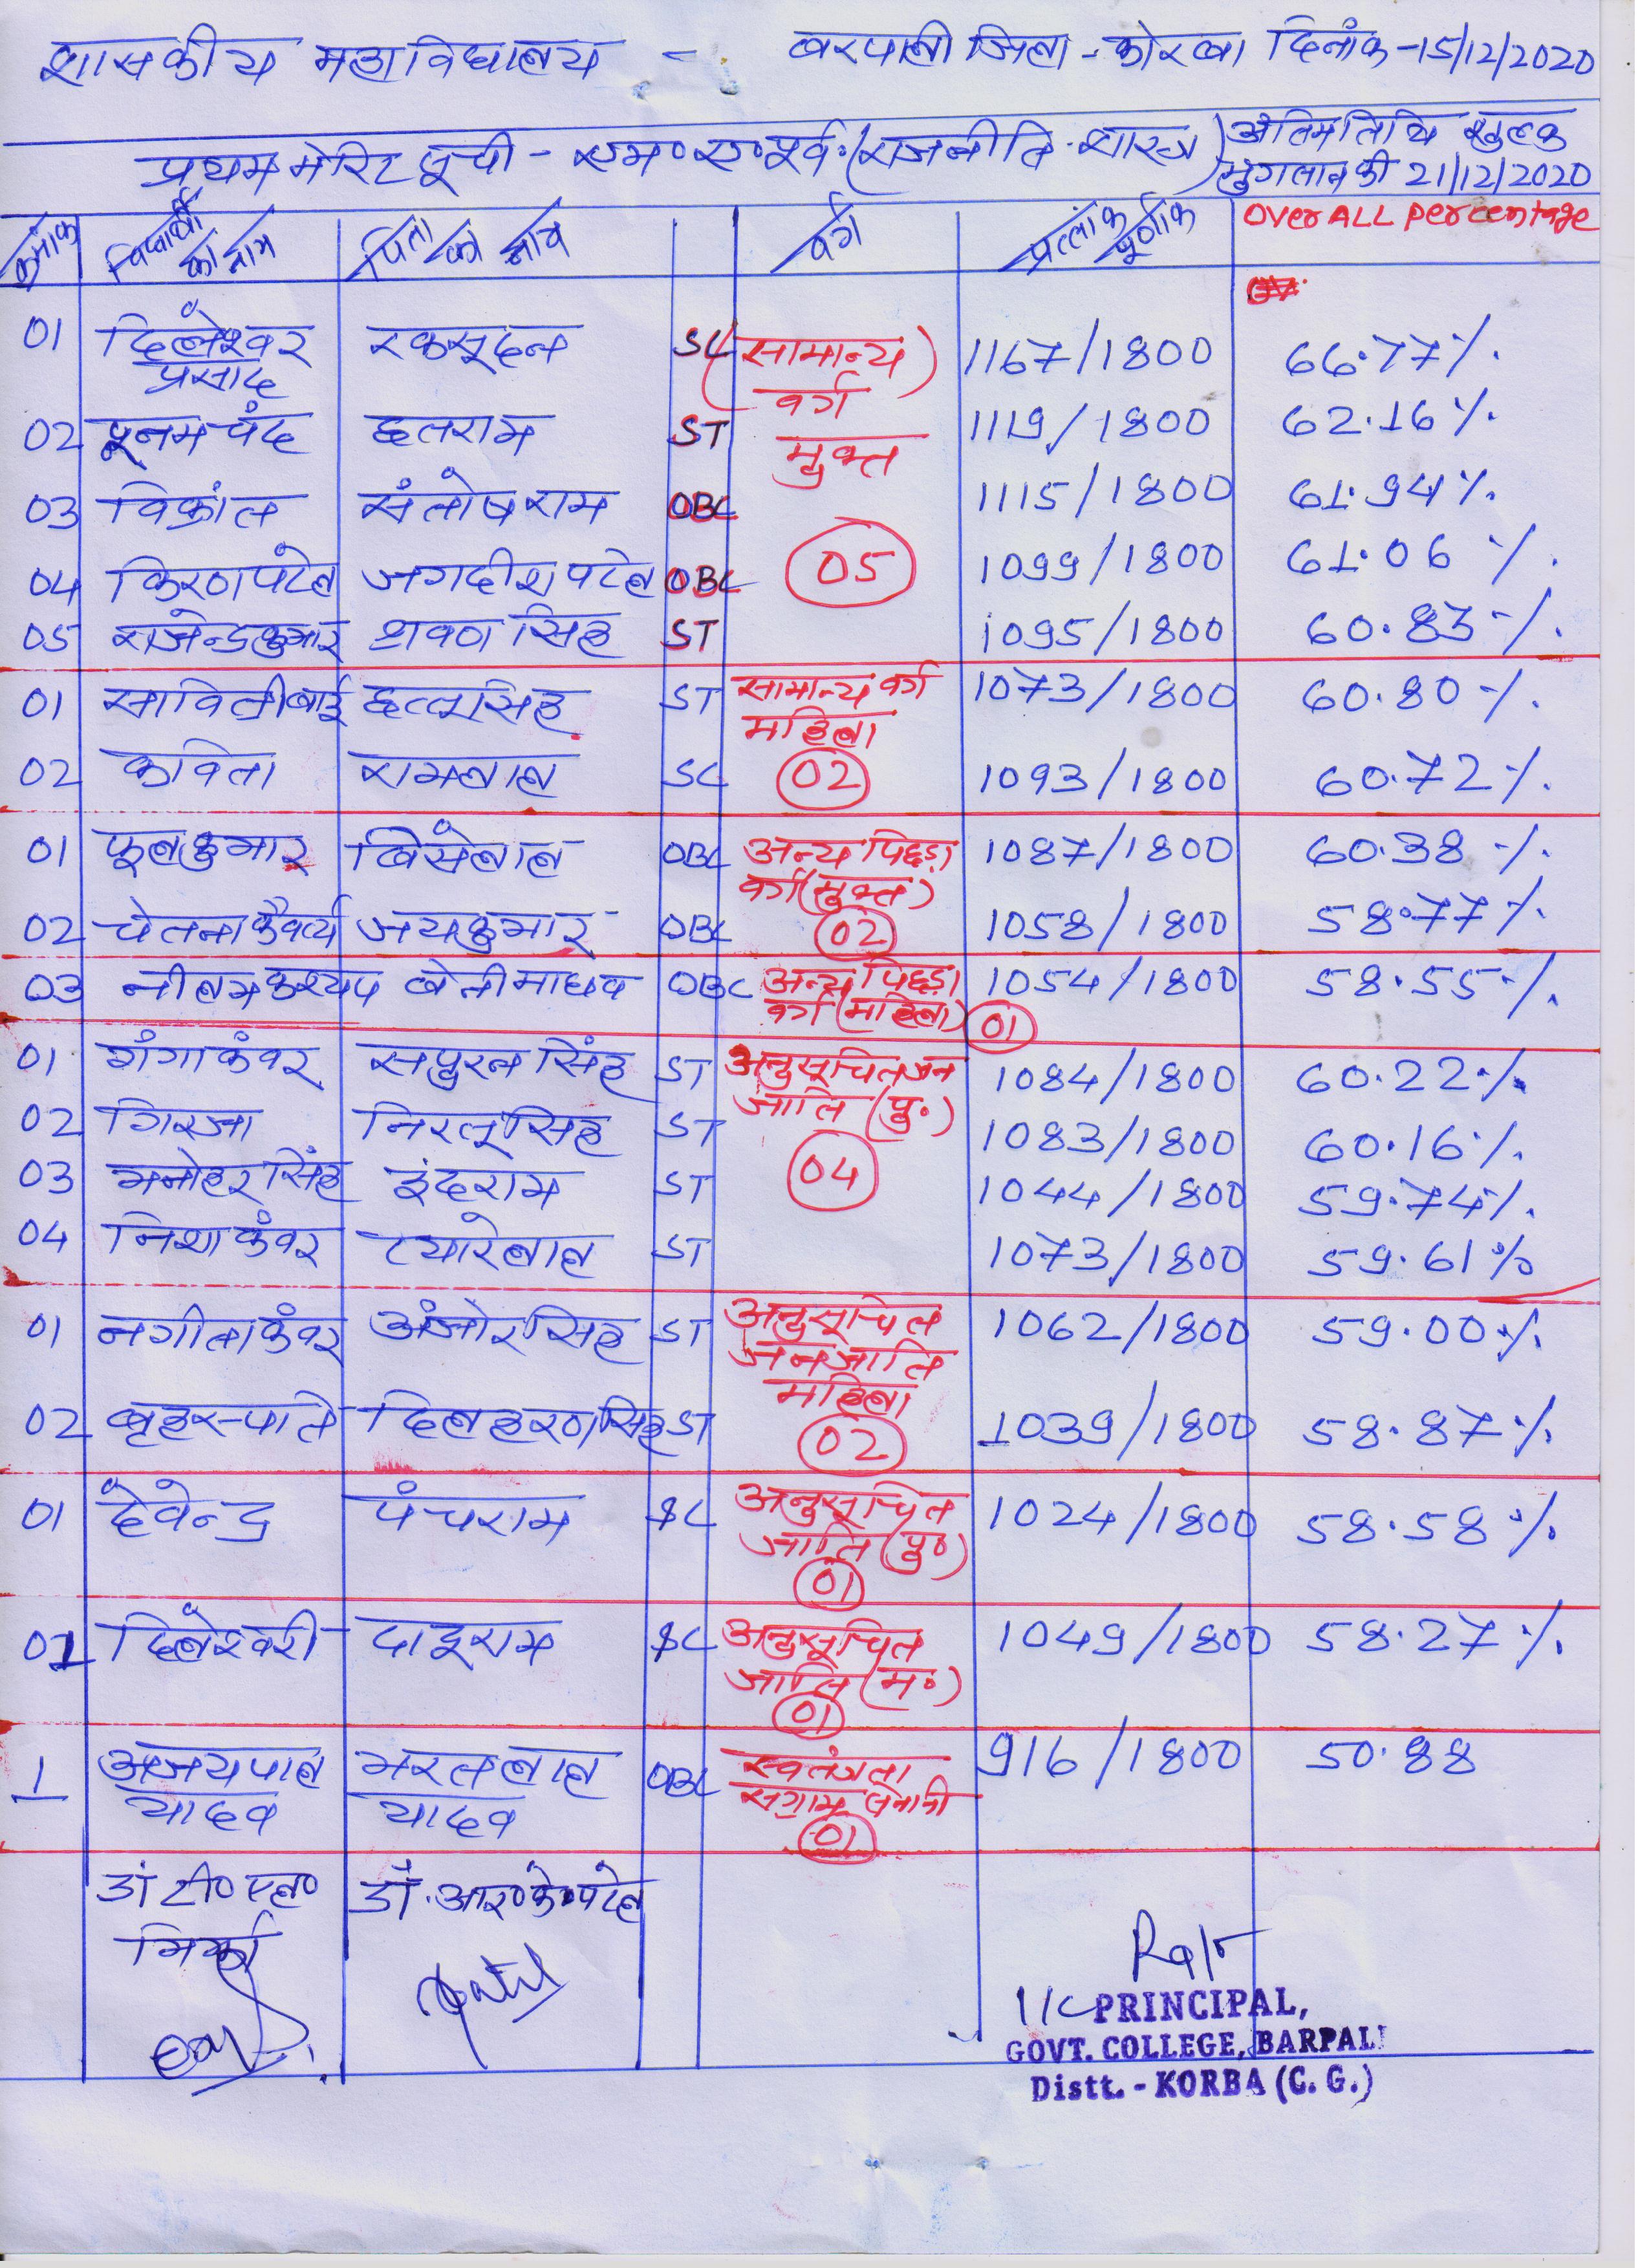 शासकीय महाविद्यालय - बरपाली जिला - कोरबा दिनांक - 15/12/2020
प्रथम मेरिट सूची - एम०ए० पूर्व. (राजनीति. शास्त्र) अंतिम तिथि शुल्क
भुगतान की 21/12/2020
क्रमांक विद्यार्थी का नाम पिता का नाम वर्ग प्राप्तांक पूर्णांक Over ALL percentage
01 दिलेश्वर रकसूदन SC (सामान्य) 1167/1800 66.77%
प्रसाद वर्ग
02 पूनम चंद छतराम ST मुक्त 1119/1800 62.16%
03 विक्रांत संतोष राम OBC 1115/1800 61.94%
04 किरण पटेल जगदीश पटेल OBC 05 1099/1800 61.06%
05 राजेन्द्र कुमार श्रवण सिंह ST 1095/1800 60.83%
01 सावित्री बाई छत्तर सिंह ST सामान्य वर्ग 1073/1800 60.80%
महिला
02 कविता रामलाल SC 02 1093/1800 60.72%
01 फूल कुमार बिसेलाल OBC अन्य पिछड़ा 1087/1800 60.38%
वर्ग (मुक्त)
02 चेतना कैवर्त्य जय कुमार OBC 02 1058/1800 58.77%
03 नीलम कश्यप बेनी माधव OBC अन्य पिछड़ा 1054/1800 58.55%
वर्ग (महिला) 01
01 गंगा कंवर सपुरन सिंह ST अनुसूचित जन 1084/1800 60.22%
जाति (पु.)
02 गिरजा निरतू सिंह ST 1083/1800 60.16%
03 मनोहर सिंह इंदराम ST 04 1044/1800 59.74%
04 निशा कंवर प्यारेलाल ST 1073/1800 59.61%
01 नगीता कंवर अंजोर सिंह ST अनुसूचित 1062/1800 59.00%
जनजाति
महिला
02 बृहस्पति दिलहरण सिंह ST 02 1039/1800 58.87%
01 देवेन्द्र पंचराम SC अनुसूचित 1024/1800 58.58%
जाति (पु०)
01
01 दिलेश्वरी दाइराम SC अनुसूचित 1049/1800 58.27%
जाति (म०)
01
1 अजय पाल भरत लाल OBC स्वतंत्रता 916/1800 50.88
यादव यादव संग्राम सेनानी
01
डॉ टी० एल० डॉ. आर० के० पटेल
मिर्झा
I/C PRINCIPAL,
GOVT. COLLEGE, BARPALI
Distt. - KORBA (C. G.)